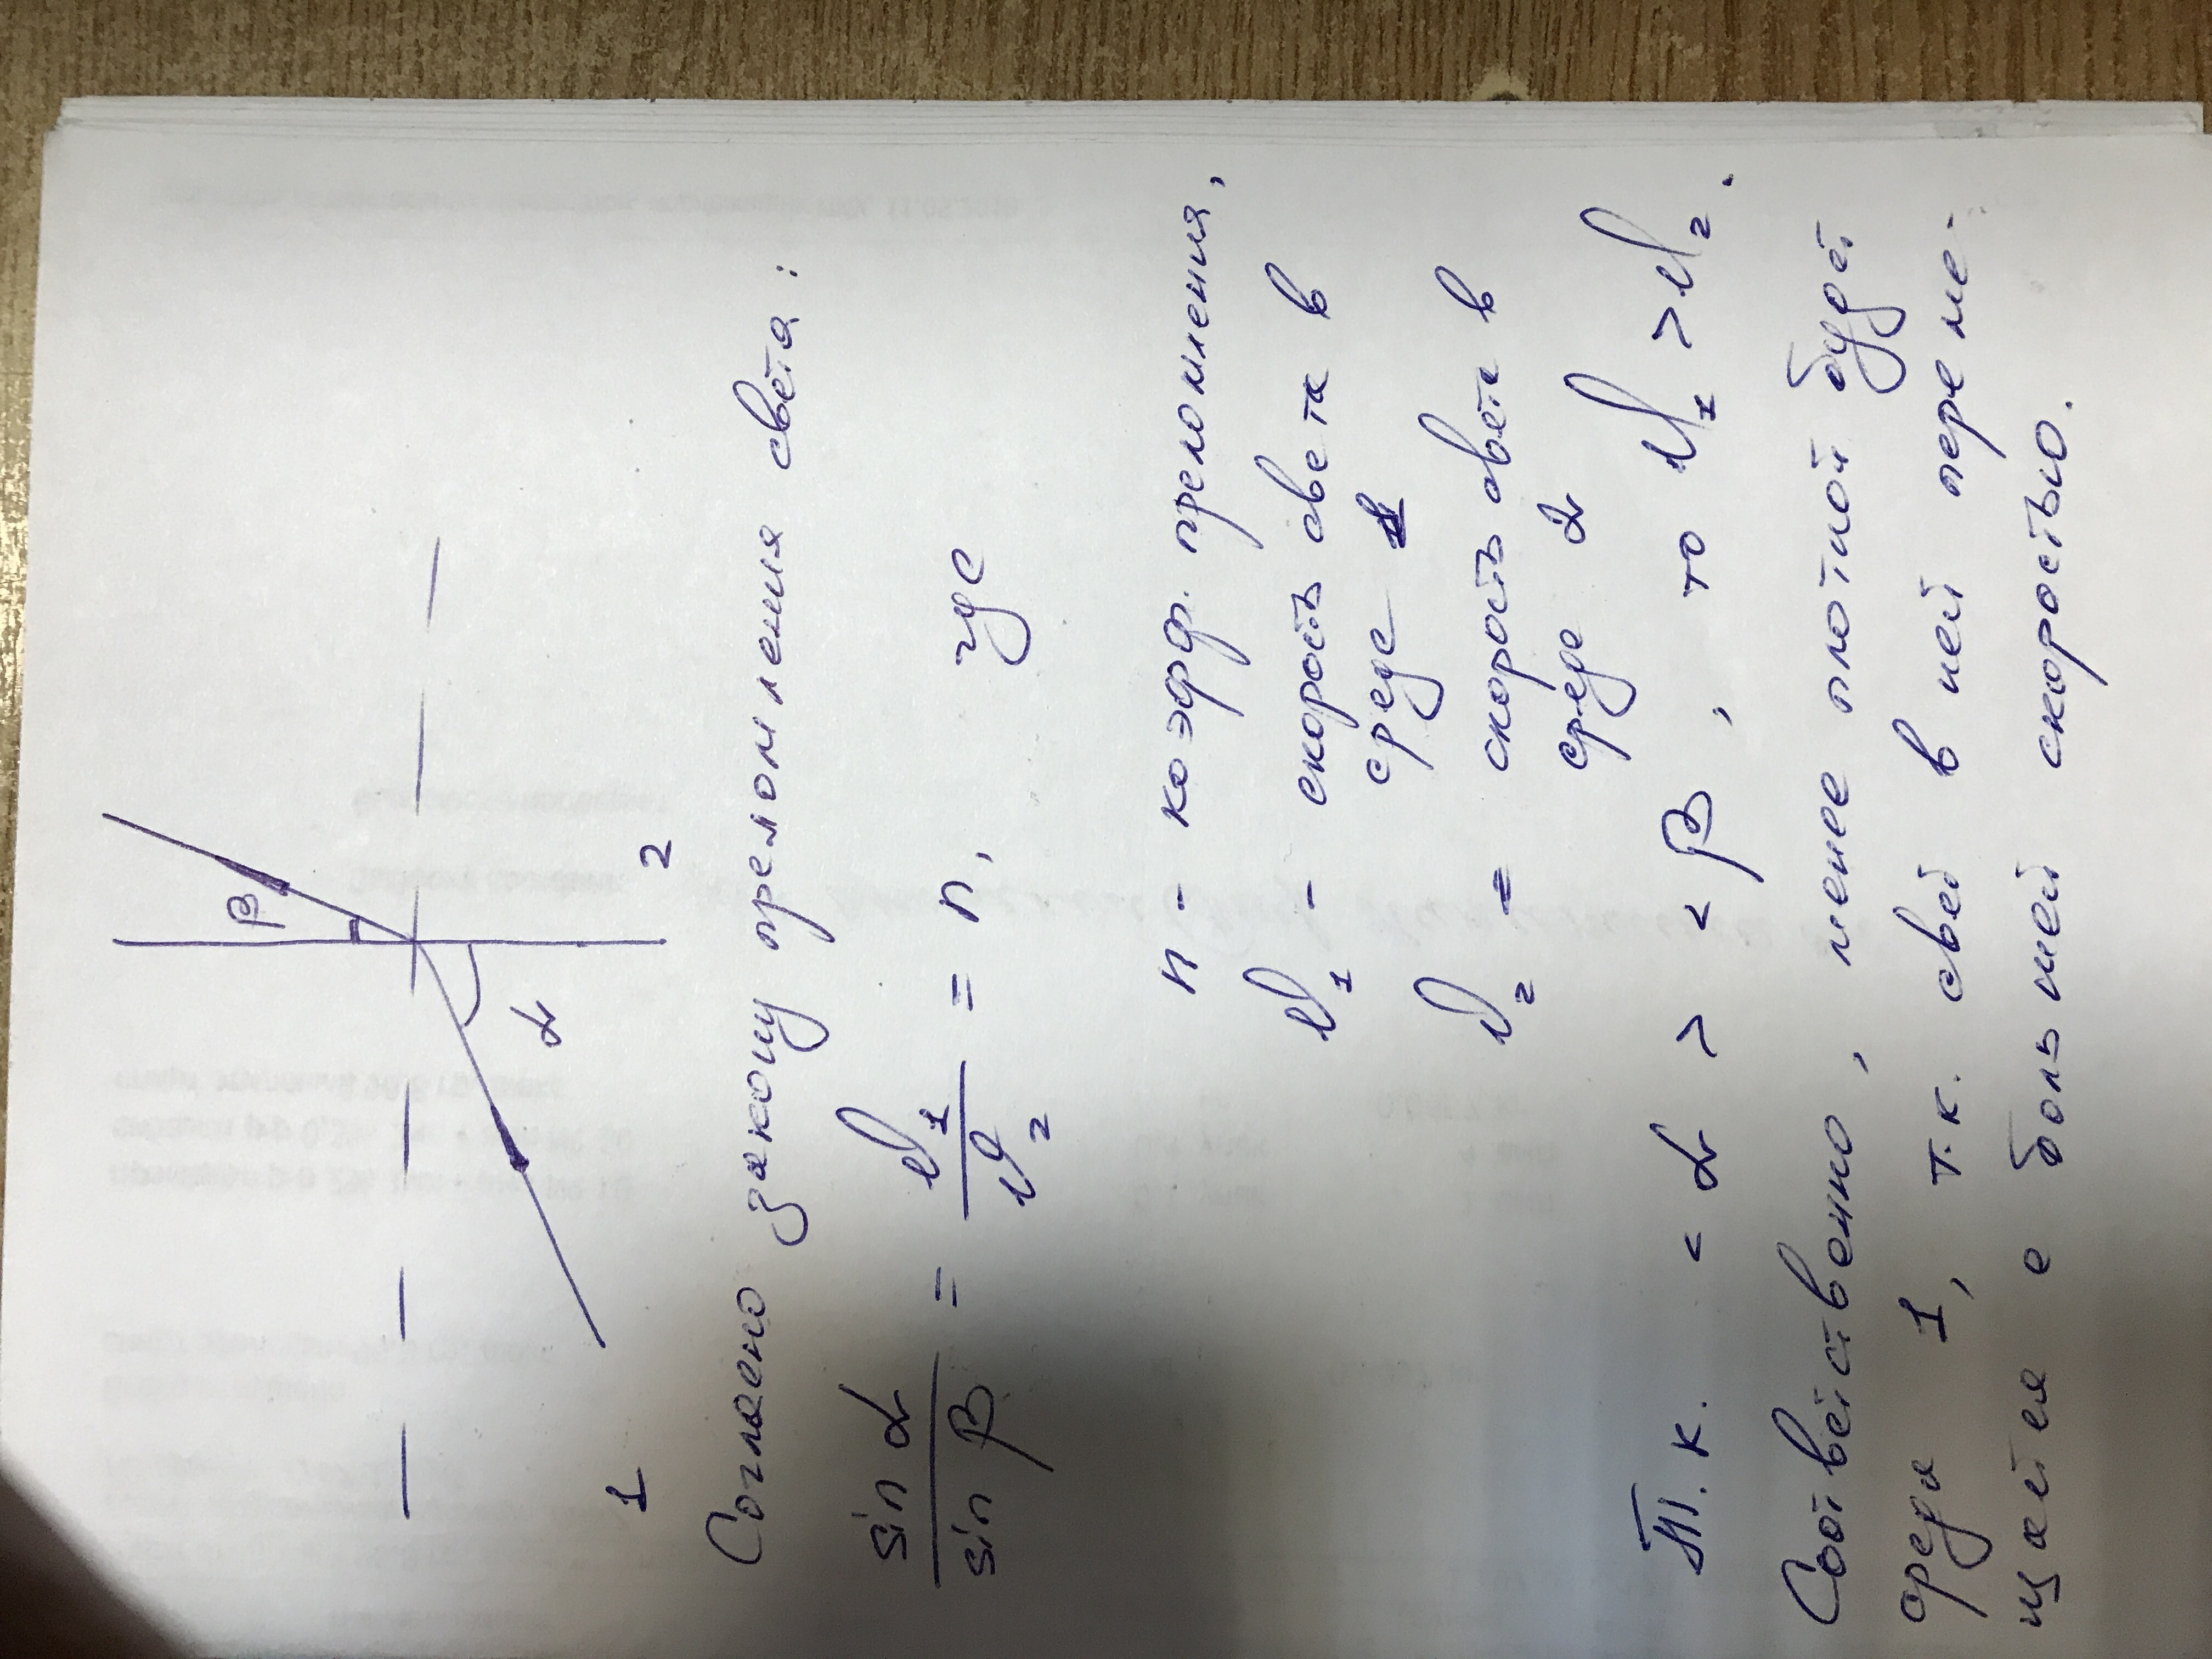 β
α
1
2
Согласно закону преломления света:
sin α / sin β = v₁ / v₂ = n, где
n - коэфф. преломления,
v₁ - скорость света в
среде 1
v₂ = скорость света в
среде 2
Т.к. < α > < β, то v₁ > v₂.
Соответственно, менее плотной будет
среда 1, т.к. свет в ней переме-
щается с большей скоростью.